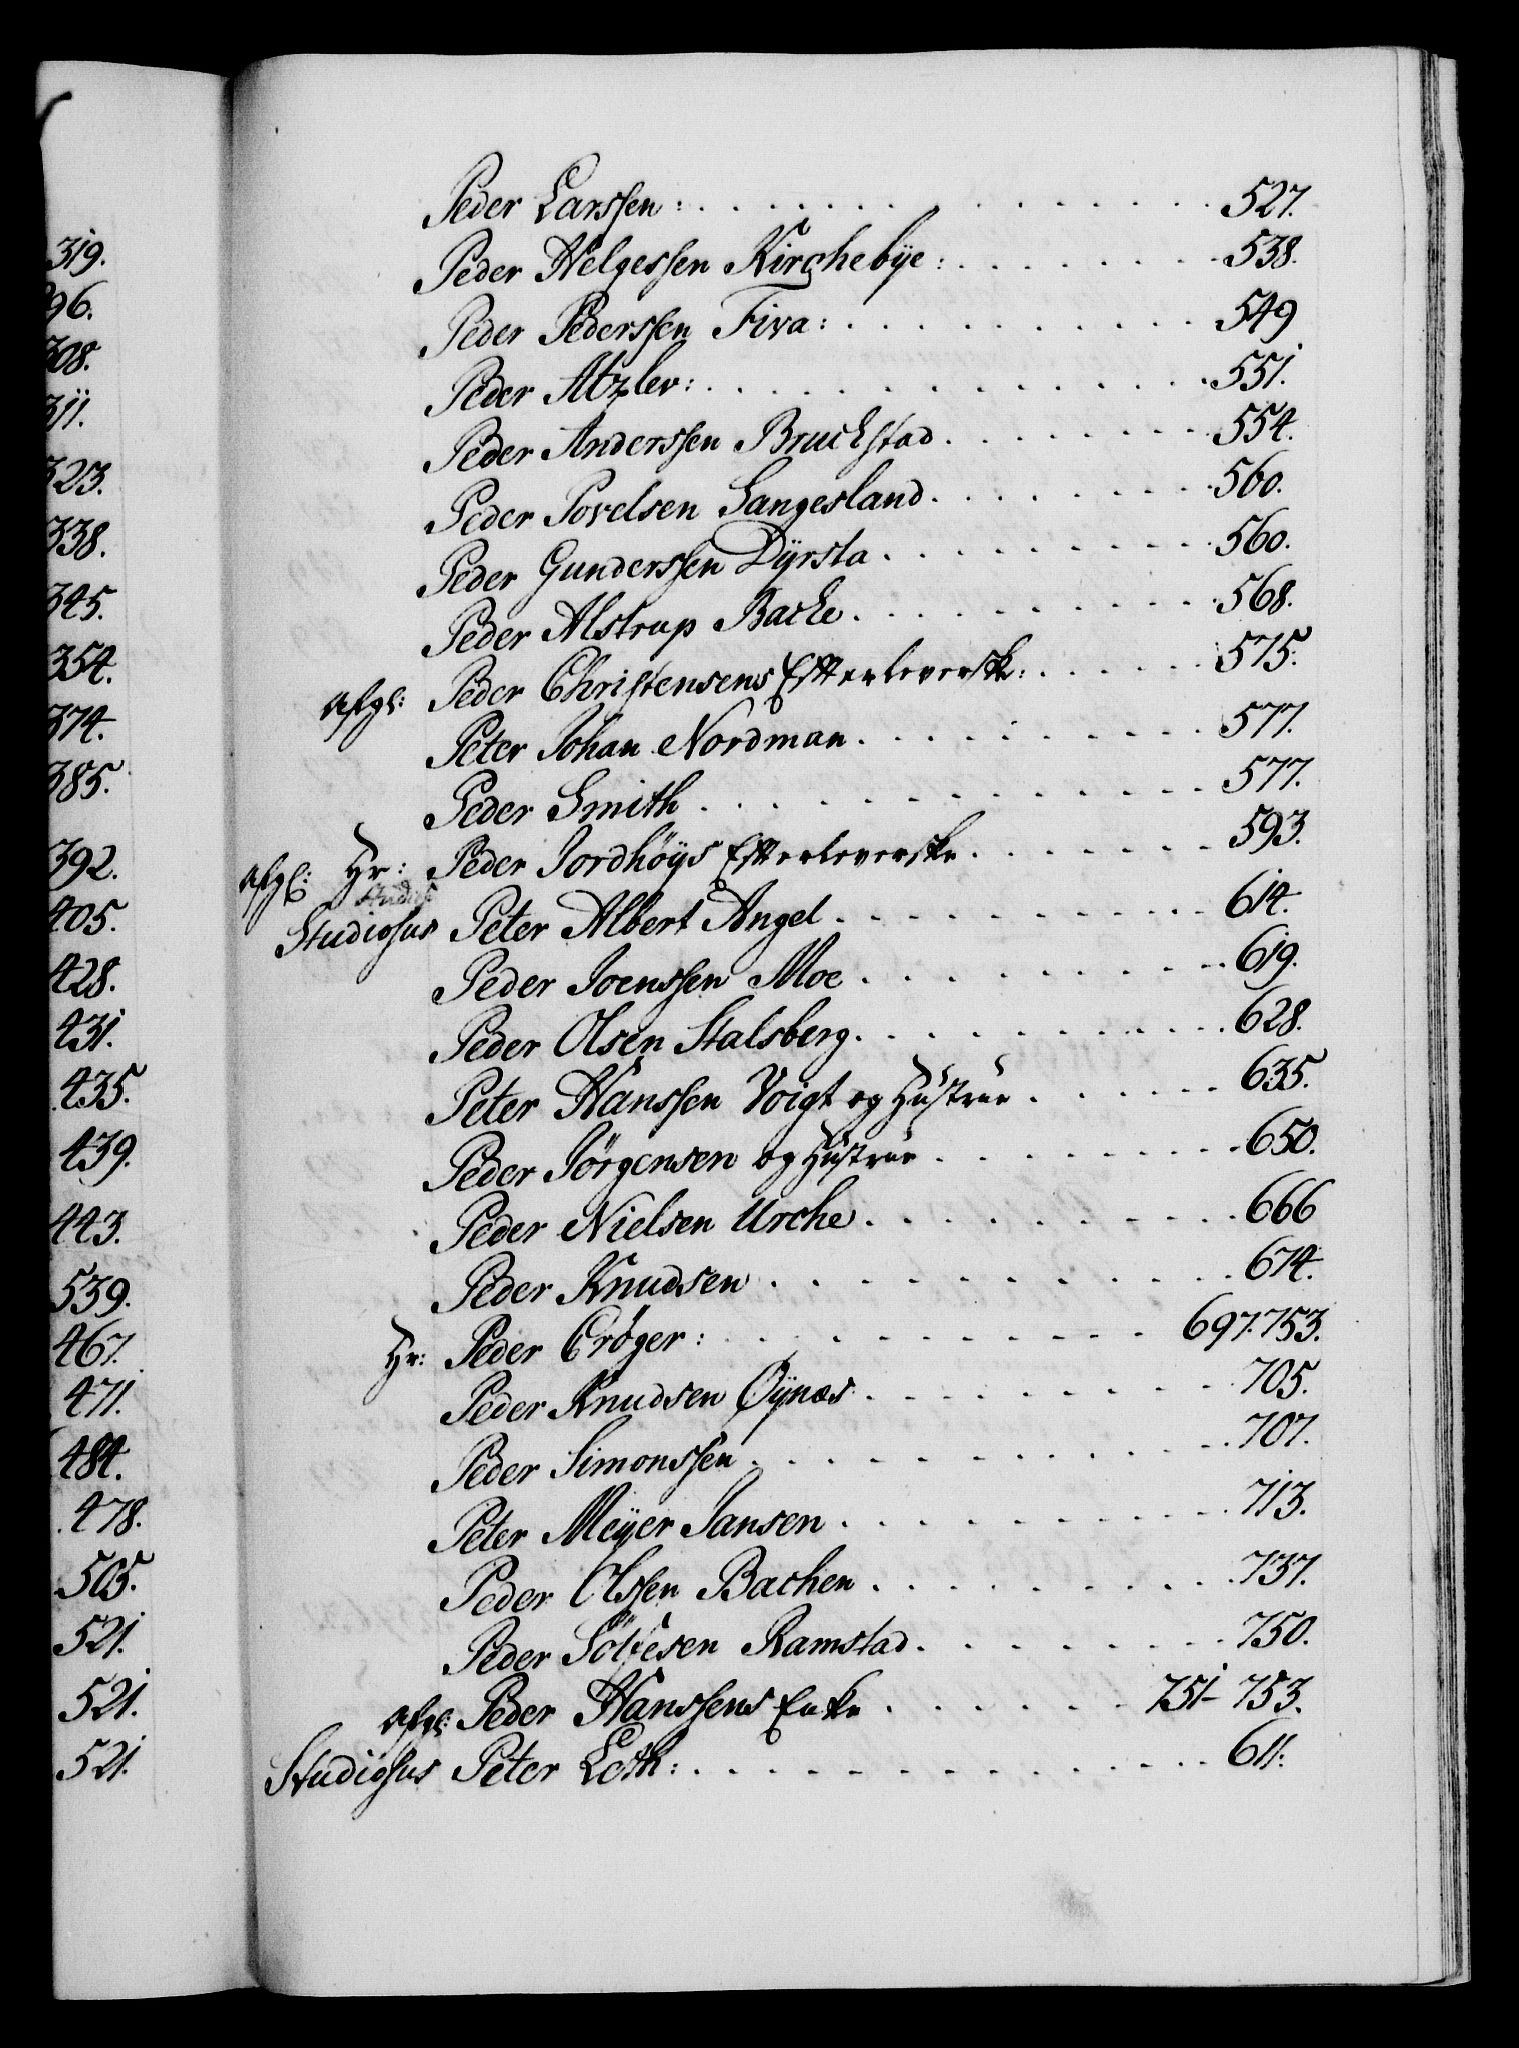 319.
96.
308.
311.
323.
338.
345.
354.
374.
385.
392.
405.
428.
431.
435.
439.
443.
539.
467.
471.
484.
478.
505.
521.
521.
521.
Peder Larssen: 527.
Peder Helgessen Kirchebÿe: 538.
Peder Pederssen Fiva: 549
Peder Atzlev: 551.
Peder Anderssen Bruchstad 554.
Peder Povelsen Langesland 560.
Peder Gunderssen Dÿrsta 560.
Peder Alstrup Backe 568.
afgl: Peder Christensens Efterleverske: 575.
Peter Johan Nordman 577.
Peder Smith 577.
afgl: Hr: Peder Jordhöÿs Efterleverske 593.
Studiosus Peter Albert Angel 614.
Peder Joenssen Moe 619.
Peder Olsen Stalsberg 628.
Peter Hanssen Voigt og Hustrue 635.
Peder Jørgensen og Hustrue 650.
Peder Nielsen Urche 666
Peder Knudsen 674.
Hr: Peder Crøger: 697. 753.
Peder Knudsen Øÿnæs 705.
Peder Simonssen 707.
Peter Meÿer Jansen 713.
Peder Olssen Bachen 737.
Peder Ramstad 750.
afgl: Peder Hanssens Enke 751- 753.
Studiosus Peter Loth: 611.